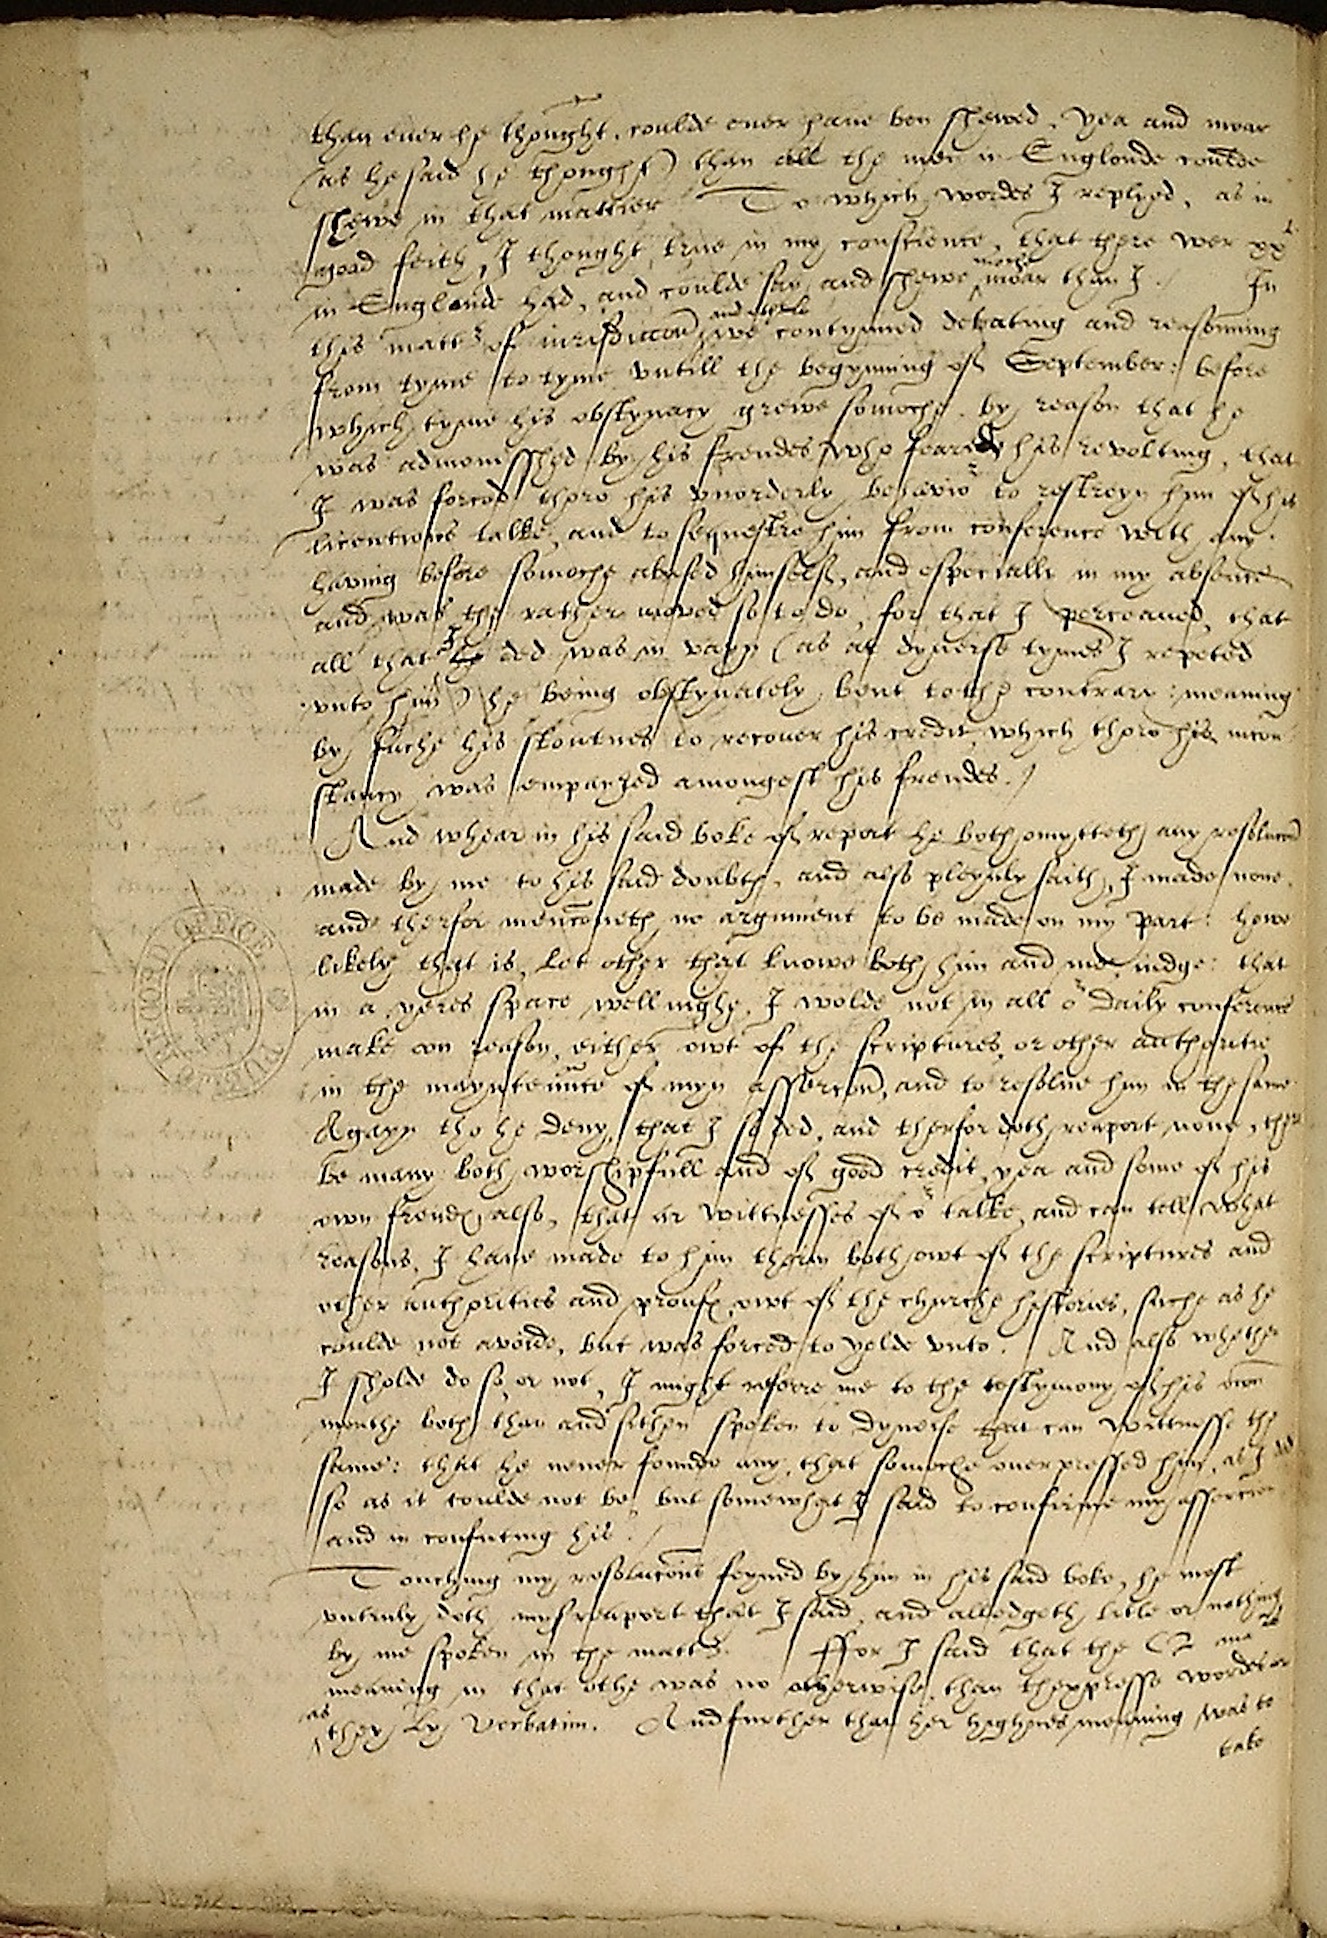 than ever he thought, coulde ever have ben shewed, yea and moar
(as he said he thought) than all the men in Englonde coulde
shewe in that mattier To which wordes I replyed, as in
good feith, I thought trwe in my conscience, that there wer xxti
in Englonde had, and coulde say and shewe moche moar than I. / In
this matter of iurisdiccon and othe we contynued debating and reasonning
from tyme to tyme untill the begynning of September: before
which tyme his obstynacy grewe somoche, by reason that he
was admonisshed by his frendes who feared his revolting, that
I was forced thoro his unorderly behavior to restreyn him of his
licentious talke, and to sequestre him from conference with any.
having before somoche abused himself, and especially in my absence
and was the rather moved so to do, for that I perceaved, that
all that I ded was in vayn (as at dyverse tymes I repeted
unto him) he being obstynately bent to the contrary: meaning
by suche his stoutnes to recover his credit, which thoro his incon
stancy was empayred amongest his frendes. /
And whear in his said boke of report he both omytteth any resolucon
made by me to his said doubtes, and also pleynly saith, I made none,
and therfor menconeth no argument to be made on my part: howe
likely that is, let other that knowe both him and me iudge: that
in a yeres space wellnighe, I wolde not in all or daily conference
make oon reason, either owt of the scriptures or other authoritie
in the mayntenunce of myn assercon, and to resolve him in the same
Agayn tho he deny, that I so ded, and therfor doth reaport none, ther
be many both worshipfull and of good credit, yea and some of his
own frendes also, that ar wittnesses of or talke, and can tell what
reasons, I have made to him therin both owt of the scriptures and
other authorities and proufes owt of the churche histories, suche as he
coulde not avoide, but was forced to yelde unto. / And also whether
I sholde do so, or not, I might referre me to the testymony of his own
mouthe both than and sithen spoken to dyverse that can wittnesse the
same: that he never founde any, that somoche overpressed him, as I did
so as it coulde not be, but somewhat I said to confirme my assercon
and in confuting his. /
Touching my resolucons feyned by him in his said boke, he most
untruly doth mysreaport that I said, and alledgeth litle or nothing
by me spoken in the matter. / Ffor I said that the
meaning in that othe was no otherwise, than thexpresse wordes ar
as they ly verbatim. And further that her highnes meaning was to
take